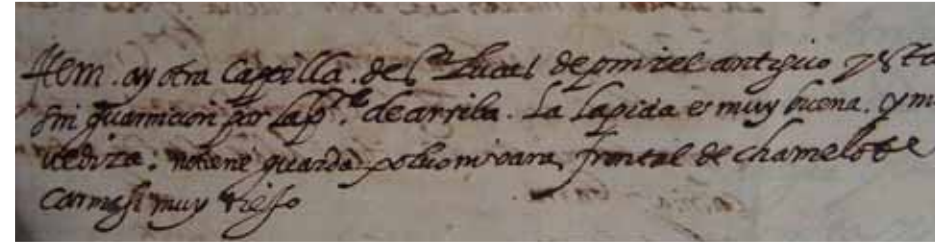 Item. ay otra Capilla. de s.t Lucas de pinzel antiguo y esta
sin guarnicion por la p.te de arriba. La lapida es muy buena. y mo
uediza: no tiene guarda poluo ni vara, frontal de chamelote
carmesi muy viejo